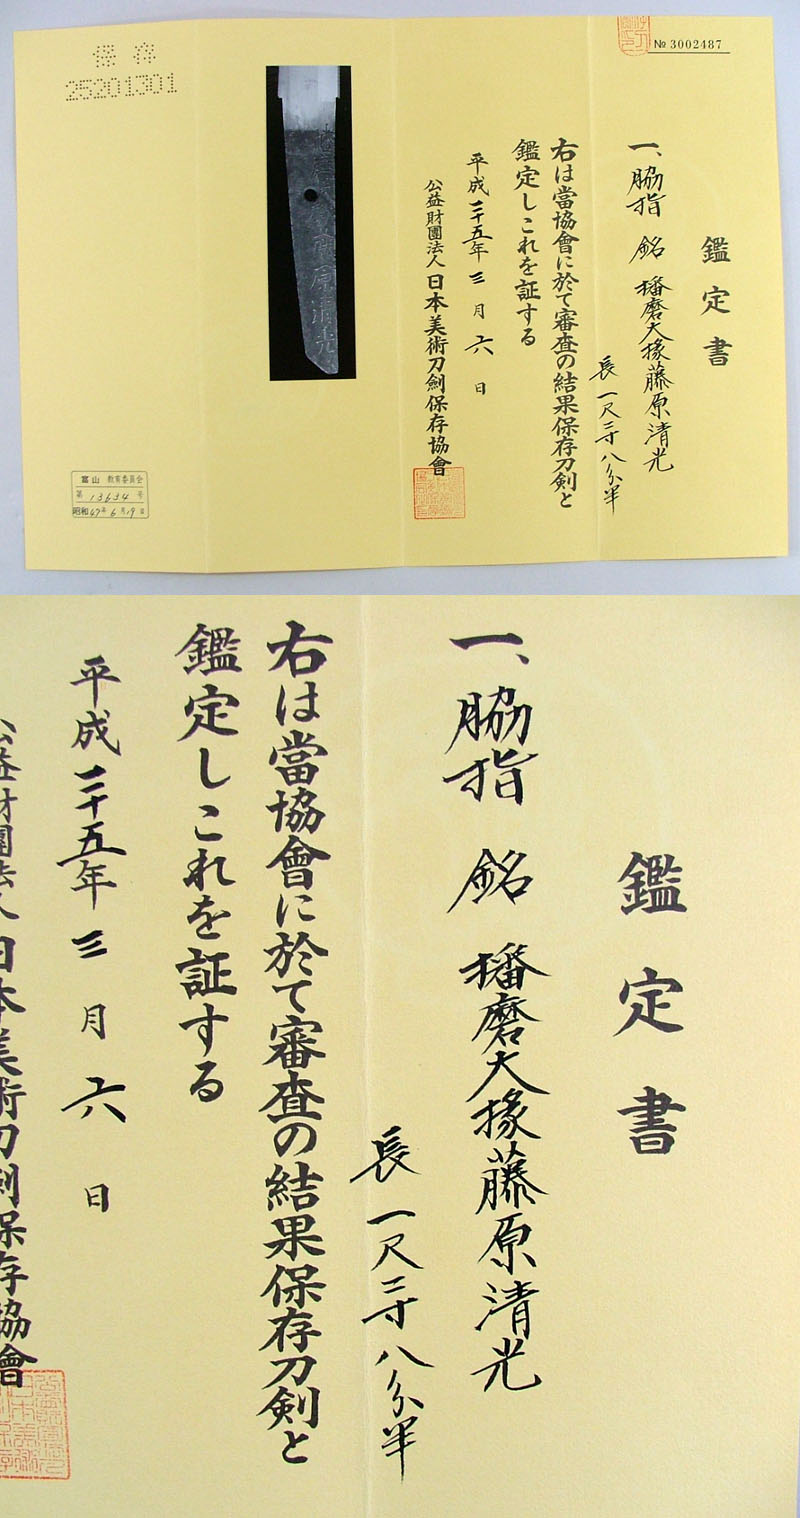 № 3002487
鑑定書
一、脇指 銘 播磨大掾藤原清光
長 一尺三寸八分半
右は當協會に於て審査の結果保存刀剣と
鑑定しこれを証する
平成二十五年三月六日
公益財團法人日本美術刀劍保存協會
藤原清光
保存
25201301
富山 教育委員会
第 13634 号
昭和47年6月19日
鑑定書
一、脇指 銘 播磨大掾藤原清光
長 一尺三寸八分半
右は當協會に於て審査の結果保存刀剣と
鑑定しこれを証する
平成二十五年三月六日
公益財團法人日本美術刀劍保存協會